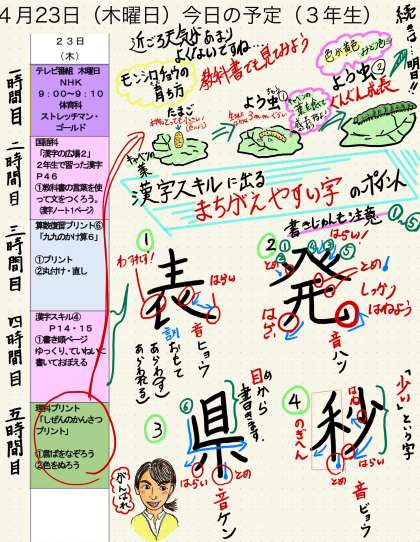 4月23日（木曜日）今日の予定（３年生）
23日
（木）
一時間目
テレビ番組 木曜日
NHK
9：00〜9：10
体育科
ストレッチマン・
ゴールド
二時間目
国語科
「漢字の広場2」
2年生で習った漢字
P46
①教科書の言葉を使
って文をつくろう。
（漢字ノート1ページ）
三時間目
算数復習プリント⑥
「九九のかけ算6」
①プリント
②丸付け・直し
四時間目
漢字スキル④
P14・15
①書き順ページ
ゆっくり、ていねいに
書いておぼえる
五時間目
理科プリント
「しぜんのかんさつ
プリント」
②色をぬろう
近ごろ天気があまり
よくないですね…
モンシロチョウの
育ち方
教科書でも見てみよう
たまご
キャベツの
葉
よう虫①
よう虫②
ぐんぐん成長
漢字スキルに出る
まちがえやすい字のポイント
①
わすれず！
表
はらい
音ヒョウ
訓おもて
あらわす
あらわれる
書きじゅんも注意
②
発
はらい
とめ
とめ
はらい
しっかり
はねよう
音ハツ
③
県
目から
書きます。
⑥
とめ
はらい
音ケン
④
秒
のぎへん
「少」という字
はらい
とめ
音ビョウ
がんばれ